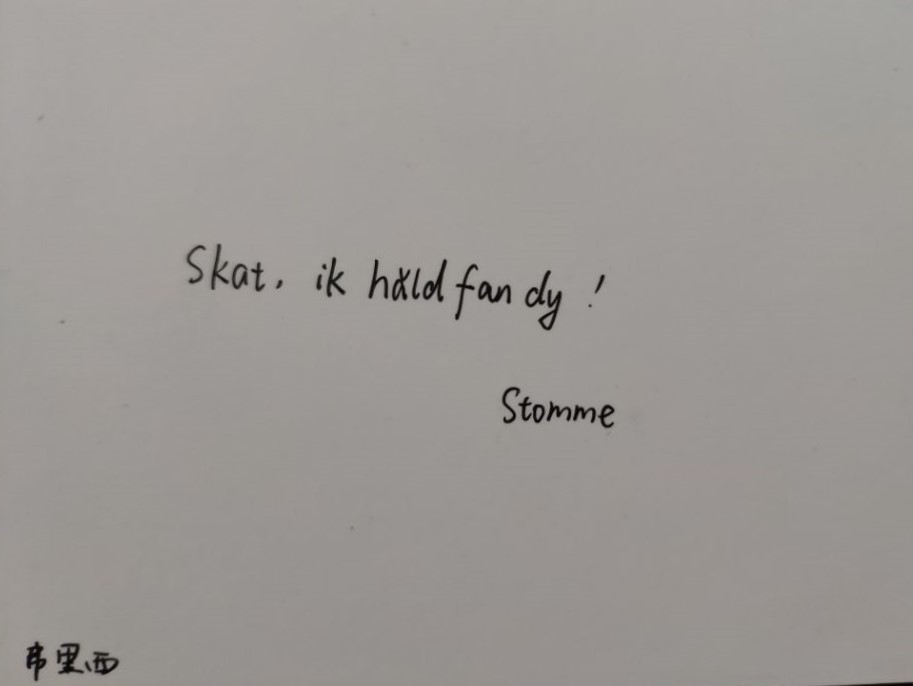 Skat, ik hâld fan dy!
Stomme
弗里西